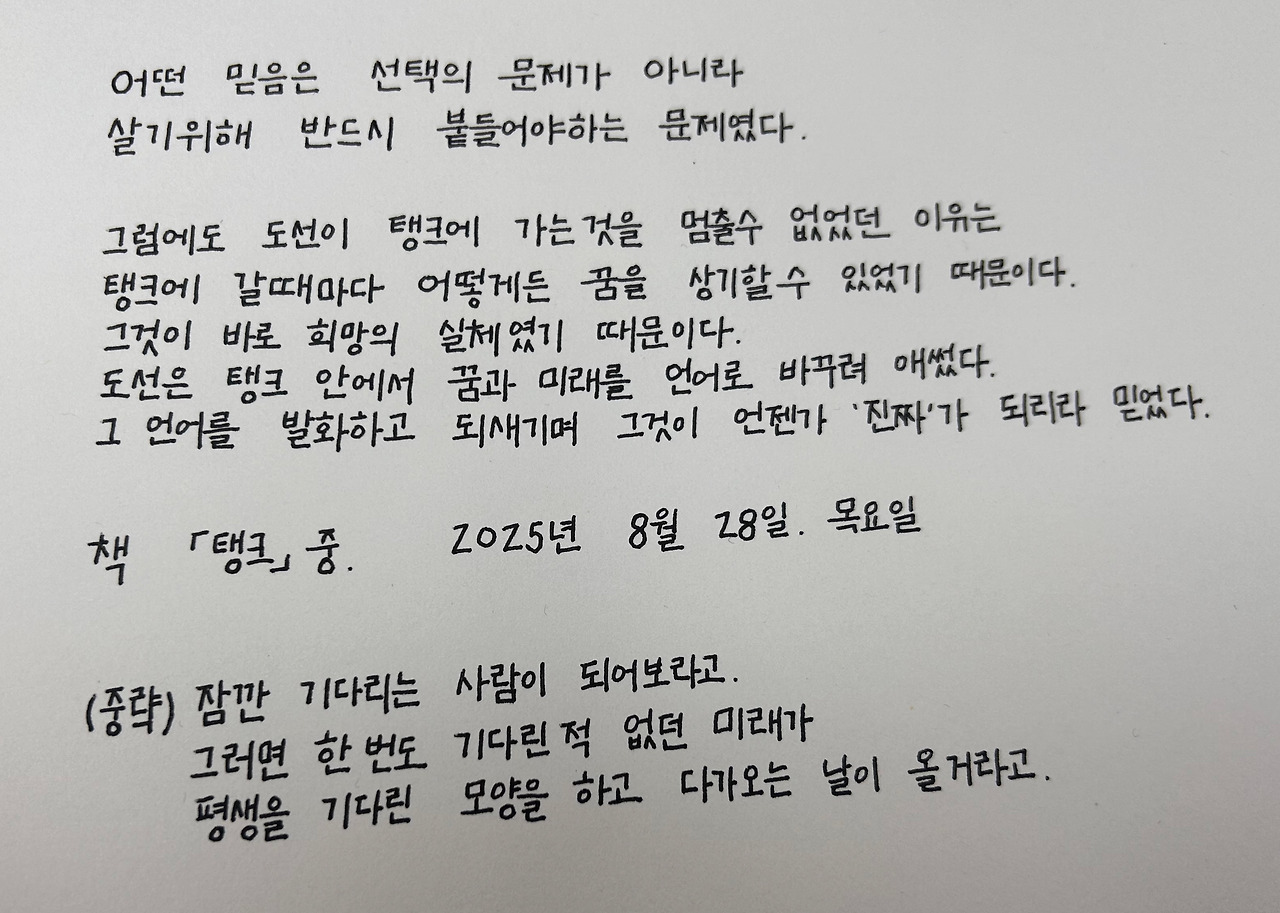 어떤 믿음은 선택의 문제가 아니라
살기위해 반드시 붙들어야하는 문제였다.
그럼에도 도선이 탱크에 가는것을 멈출수 없었던 이유는
탱크에 갈때마다 어떻게든 꿈을 상기할수 있었기 때문이다.
그것이 바로 희망의 실체였기 때문이다.
도선은 탱크 안에서 꿈과 미래를 언어로 바꾸려 애썼다.
그 언어를 발화하고 되새기며 그것이 언젠가 '진짜'가 되리라 믿었다.
책 「탱크」 중. 2025년 8월 28일. 목요일
(중략) 잠깐 기다리는 사람이 되어보라고.
그러면 한 번도 기다린적 없던 미래가
평생을 기다린 모양을 하고 다가오는 날이 올거라고.